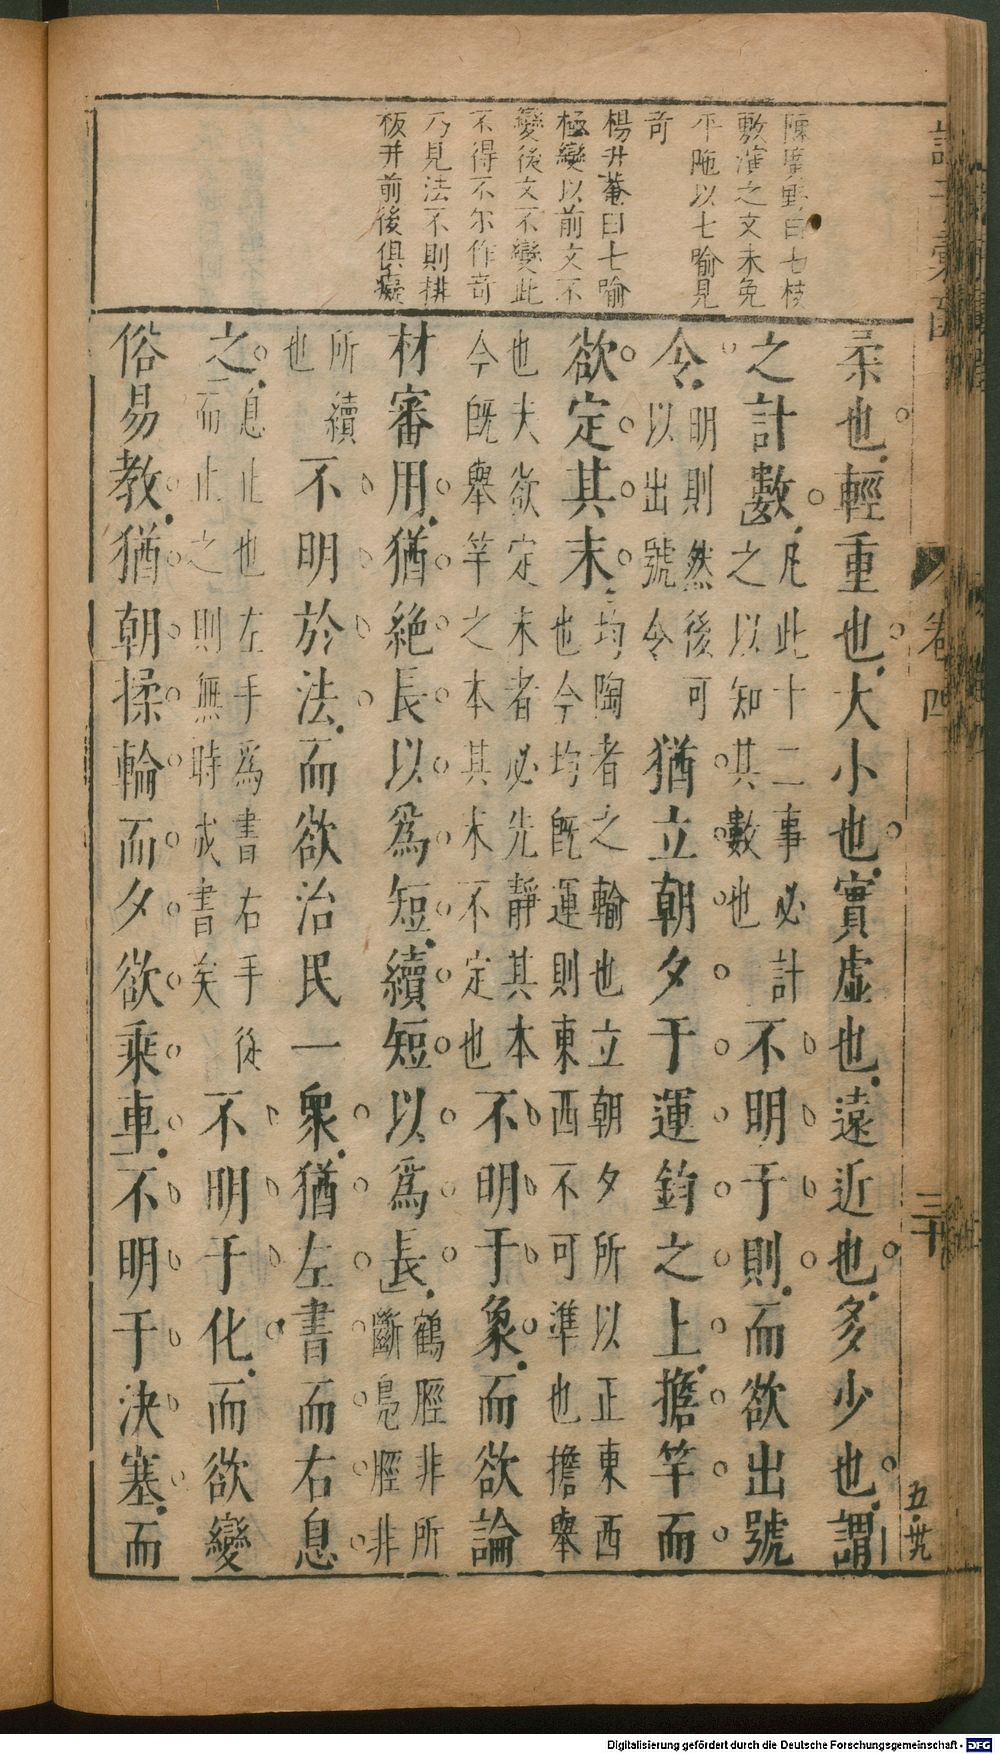 陳廣野曰七枝
敷演之文未免
平𨻶以七喻見
奇
楊升菴曰七喻
極變以前文不
變後文不變此
不得不尔作奇
乃見法不則拼
板并前後俱癡
柔也輕重也大小也實虛也遠近也多少也謂
之計數凡此十二事必計之以知其數也不明于則而欲出號
令明則然後可以出號令猶立朝夕于運鈞之上擔竿而
欲定其末均陶者之輪也立朝夕所以正東西也今均既運則東西不可準也擔舉
也夫欲定末者必先靜其本今既舉竿之本其末不定也不明于象而欲論
材審用猶絶長以爲短續短以爲長鶴脛非所斷鳬脛非
所續也不明於法而欲治民一衆猶左書而右息
之息止也左手爲書右手從而止之則無時成書矣不明于化而欲變
俗易教猶朝揉輪而夕欲乘車不明于決塞而
卷四
三十
五·卅
Digitalisierung gefördert durch die Deutsche Forschungsgemeinschaft - DFG